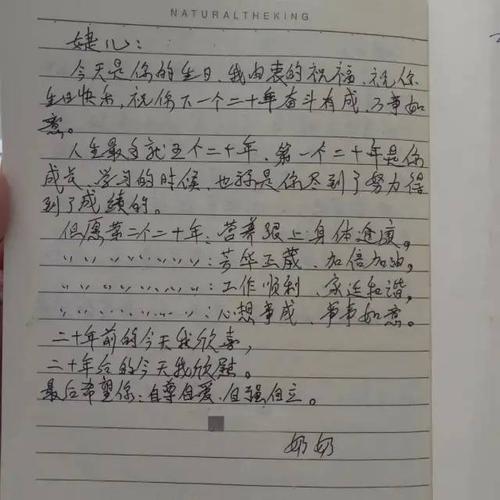 NATURALTHEKING
婕儿：
今天是你的生日，我由衷的祝福，祝你
生日快乐，祝你下一个二十年奋斗有成，万事如
意。
人生最多就五个二十年，第一个二十年是你
成长、学习的时候，也算是你尽到了努力得
到了成绩的。
但愿第二个二十年：营养跟上身体速度，
〃 〃 〃 〃 〃 〃 〃：芳华正茂、加倍加油，
〃 〃 〃 〃 〃 〃 〃：工作顺利、家庭和谐，
〃 〃 〃 〃 〃 〃 〃：心想事成、事事如意。
二十年前的今天我欣喜，
二十年后的今天我欣慰。
最后希望你：自尊自爱、自强自立。
奶奶